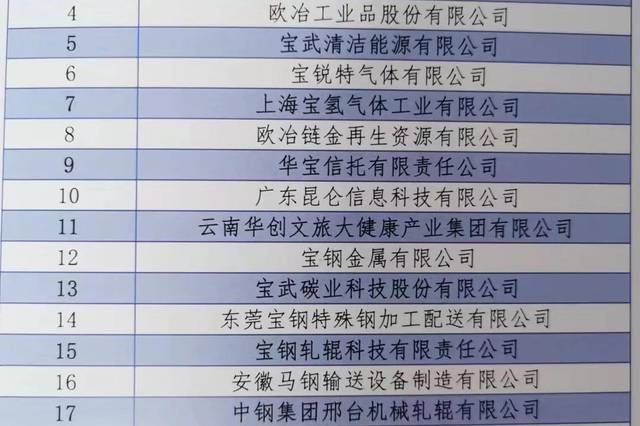 4 欧冶工业品股份有限公司
5 宝武清洁能源有限公司
6 宝锐特气体有限公司
7 上海宝氢气体工业有限公司
8 欧冶链金再生资源有限公司
9 华宝信托有限责任公司
10 广东昆仑信息科技有限公司
11 云南华创文旅大健康产业集团有限公司
12 宝钢金属有限公司
13 宝武碳业科技股份有限公司
14 东莞宝钢特殊钢加工配送有限公司
15 宝钢轧辊科技有限责任公司
16 安徽马钢输送设备制造有限公司
17 中钢集团邢台机械轧辊有限公司